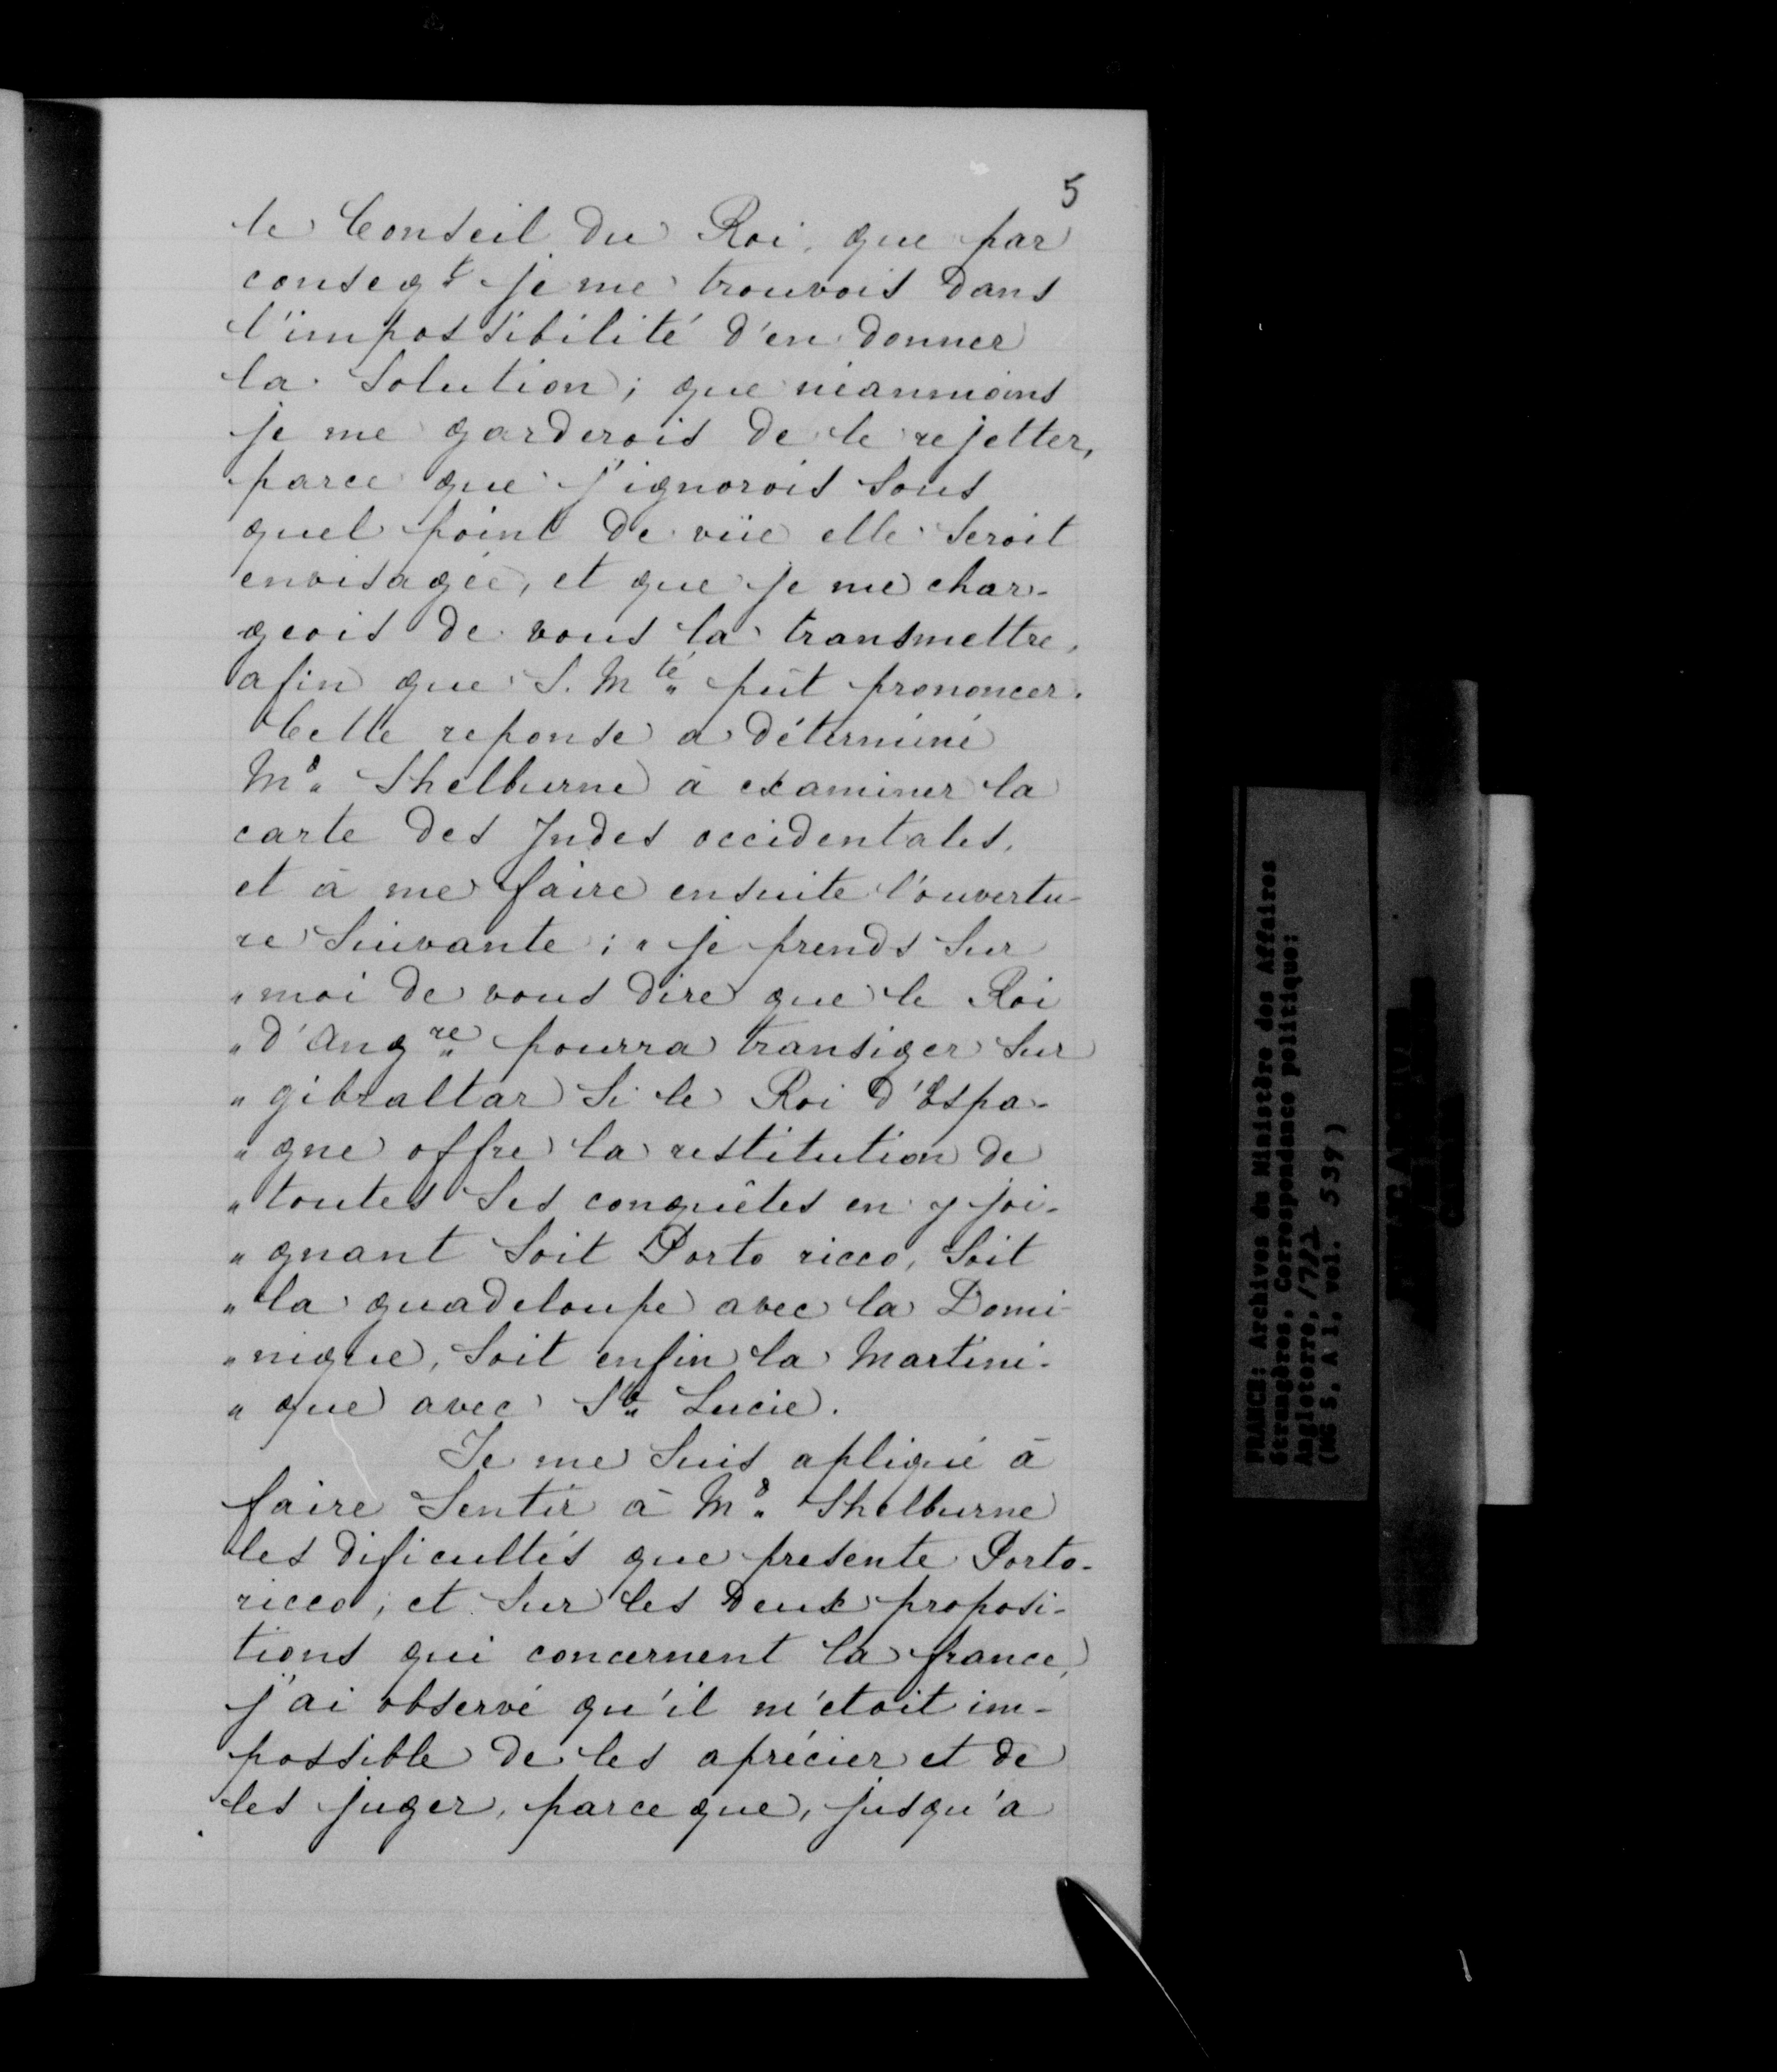 5
le Conseil du Roi, que par
conseqt je me trouvois dans
l'impossibilité d'en donner
la solution; que néanmoins
je me garderois de le rejetter,
parce que j'ignorois sous
quel point de vüe elle seroit
envisagée, et que je me char-
geois de vous la transmettre,
afin que S. Mté pût prononcer.
Cette reponse a déterminé
Md Shelburne à examiner la
carte des Indes occidentales,
et à me faire ensuite l'ouvertu-
re suivante; " je prends sur
" moi de vous dire que le Roi
" d'Angre pourra transiger sur
" gibraltar si le Roi d'Espa-
" gne offre la restitution de
" toutes ses conquêtes en y joi-
" gnant soit Porto ricco, soit
" la guadeloupe avec la Domi-
" nique, soit enfin la Martini-
" que avec Ste Lucie.
Je me suis apliqué à
faire sentir à Md Shelburne
les dificultés que presente Porto-
ricco; et sur les deux proposi-
tions qui concernent la france,
j'ai observé qu'il m'etoit im-
possible de les aprécier et de
les juger, parce que, jusqu'a
FRANCE: Archives du Ministère des Affaires
étrangères, Correspondance politique:
Angleterre, 1782
(MG 5, A 1, vol. 539)